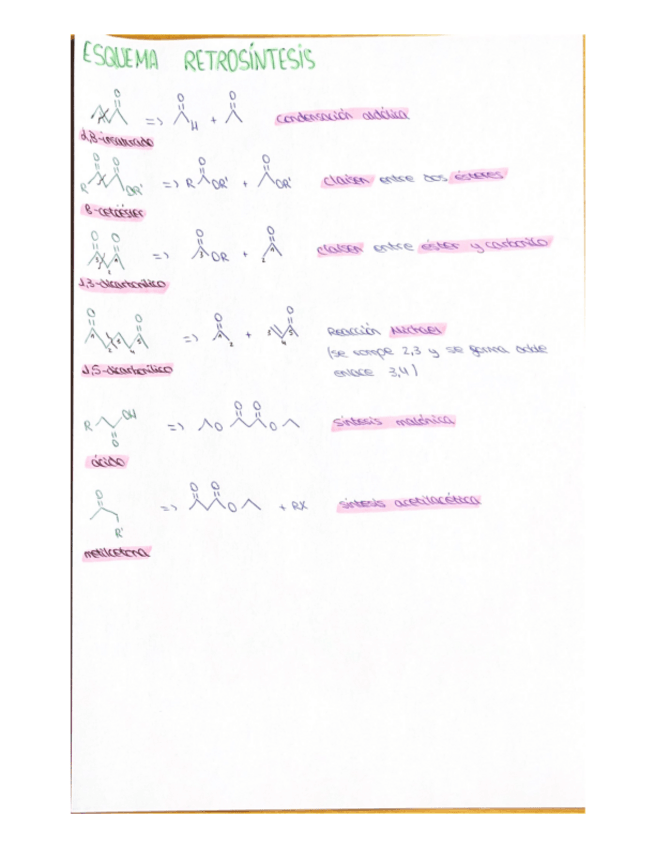 ESQUEMA RETROSÍNTESIS
O O O
=> H + condensación aldólica
α,β-insaturado
O O O O
R OR' => R OR' + OR' claisen entre dos ésteres
β-cetoéster
O O O O
3 2 1 => 3 OR + 2 1 claisen entre éster y carbonilo
1,3-dicarbonílico
O O O O
1 2 3 4 5 => 1 2 + 3 4 5 Reacción Michael
(se rompe 2,3 y se forma doble
1,5-dicarbonílico enlace 3,4)
R OH => O O O O síntesis malónica
O
ácido
O O O
=> O + RX síntesis acetilacética
R'
metilcetona